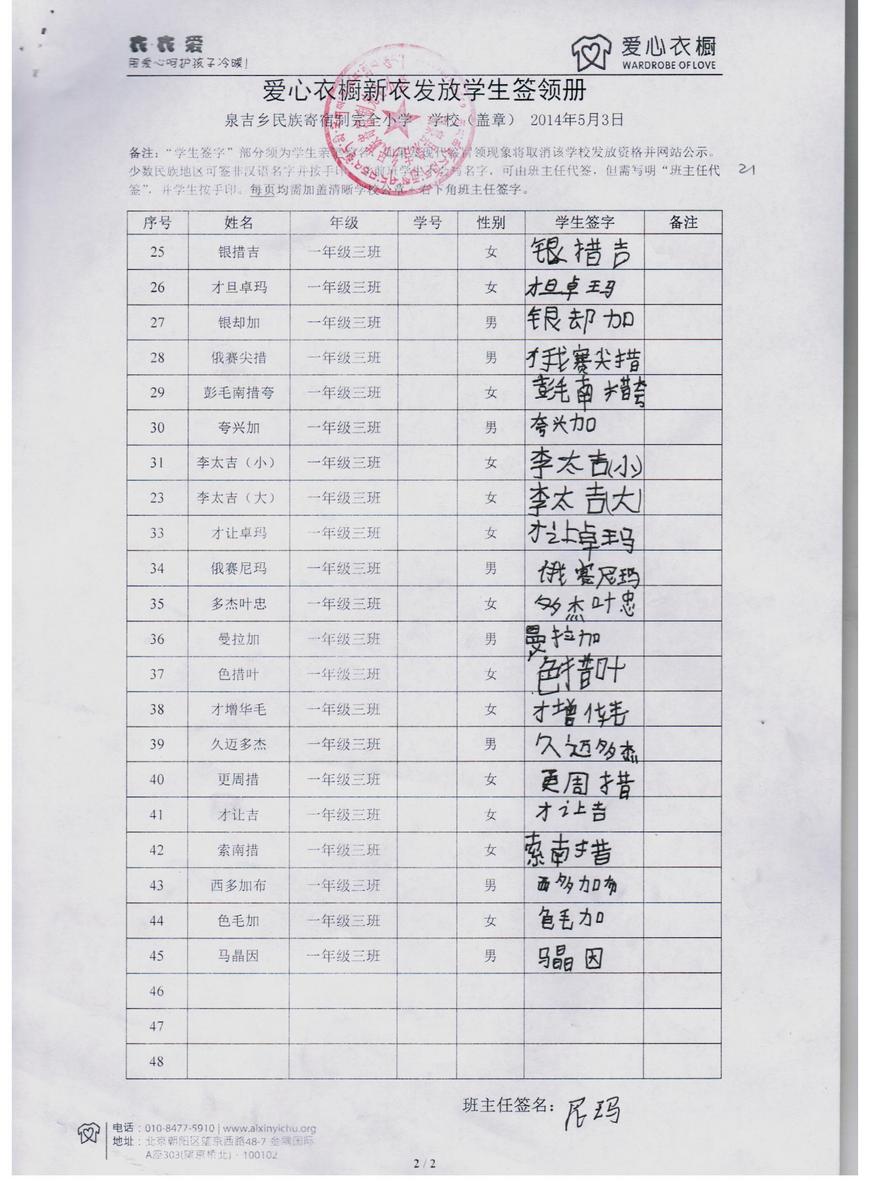 衣衣爱
用爱心呵护孩子冷暖!
爱心衣橱
WARDROBE OF LOVE
爱心衣橱新衣发放学生签领册
泉吉乡民族寄宿制完全小学 学校（盖章） 2014年5月3日
备注：“学生签字”部分须为学生亲 领现象将取消该学校发放资格并网站公示。
少数民族地区可签非汉语名字并按手印 名字，可由班主任代签，但需写明“班主任代 21
签”，并学生按手印。每页均需加盖清晰学校公章，右下角班主任签字。
序号 姓名 年级 学号 性别 学生签字 备注
25 银措吉 一年级三班 女 银措吉
26 才旦卓玛 一年级三班 女 才旦卓玛
27 银却加 一年级三班 男 银却加
28 俄赛尖措 一年级三班 男 俄赛尖措
29 彭毛南措夸 一年级三班 女 彭毛南措夸
30 夸兴加 一年级三班 男 夸兴加
31 李太吉（小） 一年级三班 女 李太吉(小)
23 李太吉（大） 一年级三班 女 李太吉(大)
33 才让卓玛 一年级三班 女 才让卓玛
34 俄赛尼玛 一年级三班 男 俄赛尼玛
35 多杰叶忠 一年级三班 女 多杰叶忠
36 曼拉加 一年级三班 男 曼拉加
37 色措叶 一年级三班 女 色措叶
38 才增华毛 一年级三班 女 才增华毛
39 久迈多杰 一年级三班 男 久迈多杰
40 更周措 一年级三班 女 更周措
41 才让吉 一年级三班 女 才让吉
42 索南措 一年级三班 女 索南措
43 西多加布 一年级三班 男 西多加布
44 色毛加 一年级三班 女 色毛加
45 马晶因 一年级三班 男 马晶因
46
47
48
班主任签名：尼玛
电话：010-8477-5910 | www.aixinyichu.org
地址：北京朝阳区望京西路48-7 金隅国际
A座303(望京桥北)·100102
2 / 2